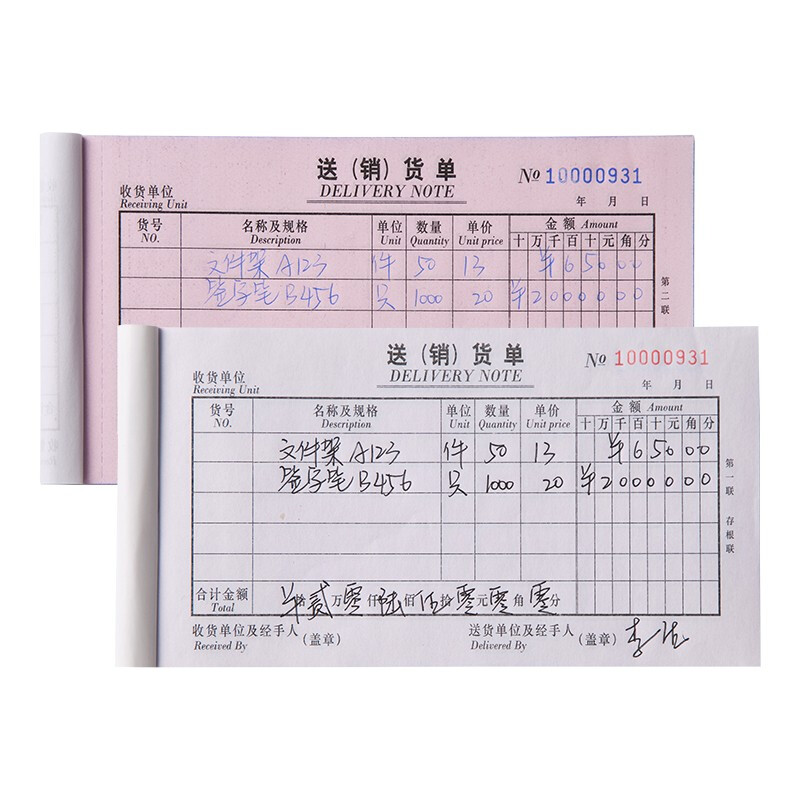 送（销）货单
№ 10000931
DELIVERY NOTE
收货单位
Receiving Unit
年 月 日
货号 名称及规格 单位 数量 单价 金额 Amount
NO. Description Unit Quantity Unit price 十 万 千 百 十 元 角 分
文件架 A123 件 50 13 ¥ 6 5 0 0 0
签字笔 B456 只 1000 20 ¥ 2 0 0 0 0 0 0
第二联
送（销）货单
№ 10000931
DELIVERY NOTE
收货单位
Receiving Unit
年 月 日
货号 名称及规格 单位 数量 单价 金额 Amount
NO. Description Unit Quantity Unit price 十 万 千 百 十 元 角 分
文件架 A123 件 50 13 ¥ 6 5 0 0 0
签字笔 B456 只 1000 20 ¥ 2 0 0 0 0 0 0
第一联 存根联
合计金额 拾贰万零仟陆佰伍拾零元零角零分
Total
收货单位及经手人（盖章） 送货单位及经手人（盖章）
Received By Delivered By